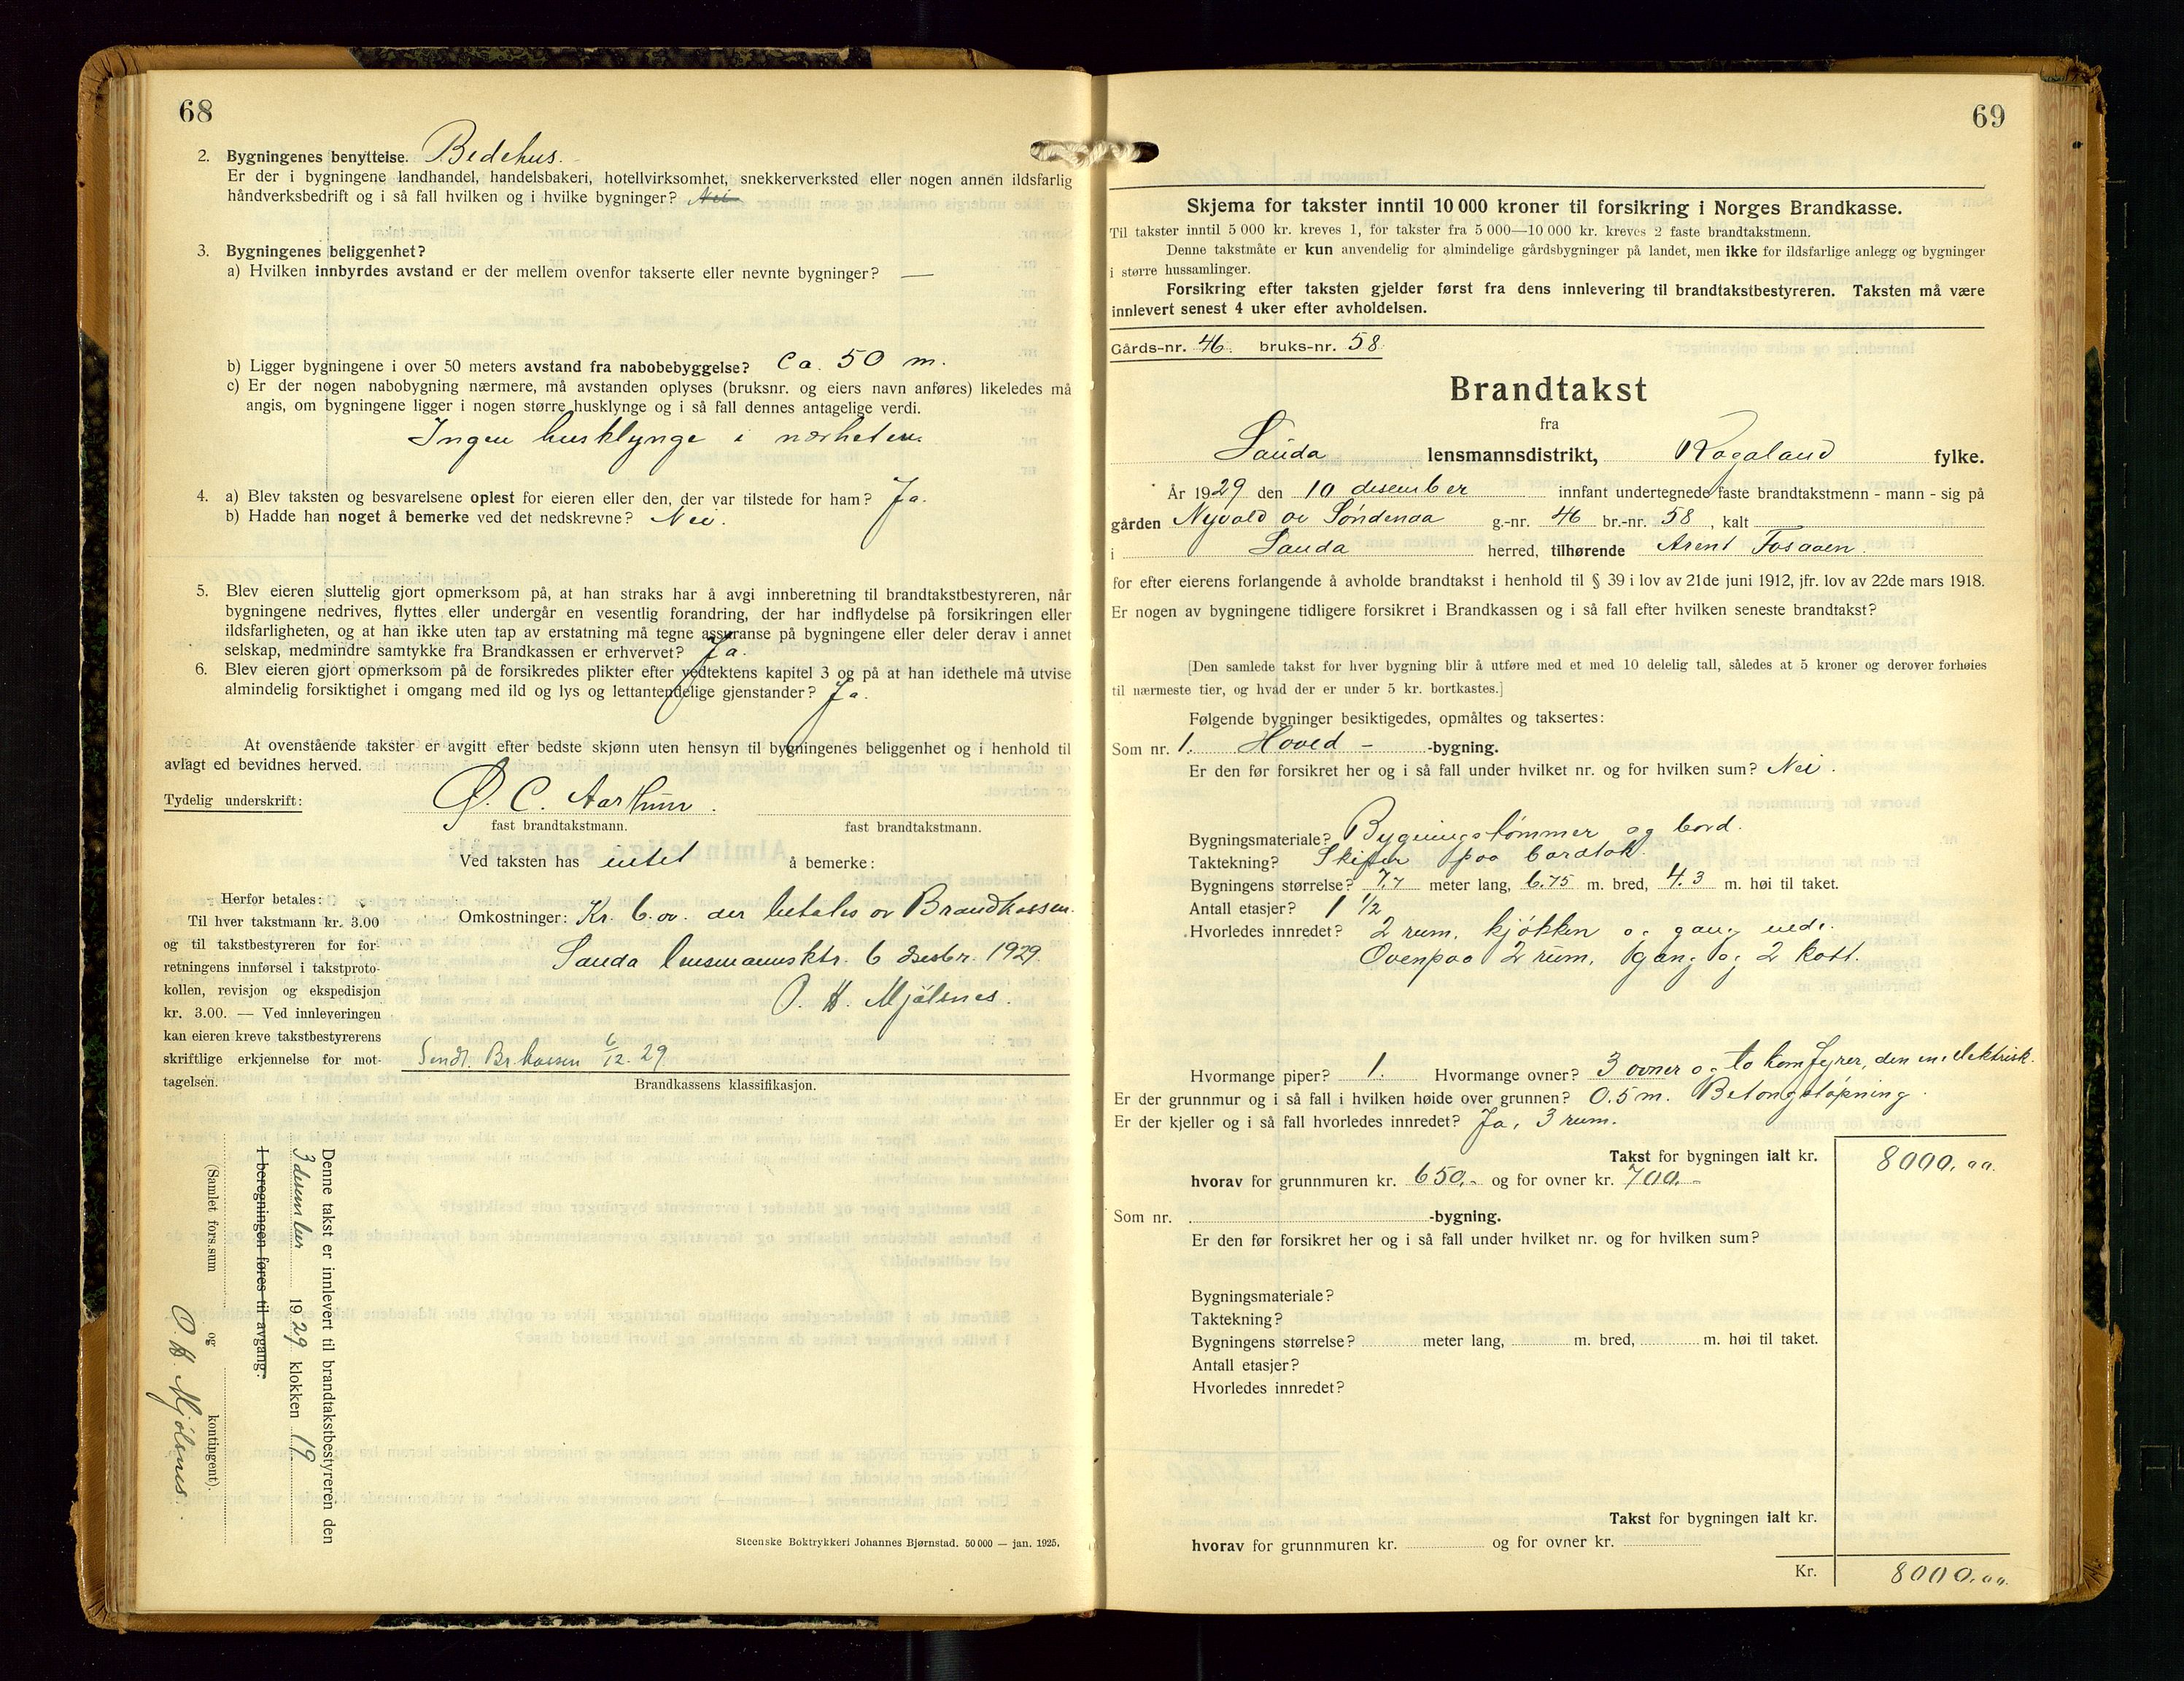 68
2. Bygningenes benyttelse. Bedehus.
Er der i bygningene landhandel, handelsbakeri, hotellvirksomhet, snekkerverksted eller nogen annen ildsfarlig
håndverksbedrift og i så fall hvilken og i hvilke bygninger? Nei
3. Bygningenes beliggenhet?
a) Hvilken innbyrdes avstand er der mellem ovenfor takserte eller nevnte bygninger? —
b) Ligger bygningene i over 50 meters avstand fra nabobebyggelse? Ca. 50 m.
c) Er der nogen nabobygning nærmere, må avstanden oplyses (bruksnr. og eiers navn anføres) likeledes må
angis, om bygningene ligger i nogen større husklynge og i så fall dennes antagelige verdi.
Ingen husklynge i nærheten.
4. a) Blev taksten og besvarelsene oplest for eieren eller den, der var tilstede for ham? Ja.
b) Hadde han noget å bemerke ved det nedskrevne? Nei.
5. Blev eieren sluttelig gjort opmerksom på, at han straks har å avgi innberetning til brandtakstbestyreren, når
bygningene nedrives, flyttes eller undergår en vesentlig forandring, der har indflydelse på forsikringen eller
ildsfarligheten, og at han ikke uten tap av erstatning må tegne assuranse på bygningene eller deler derav i annet
selskap, medmindre samtykke fra Brandkassen er erhvervet? Ja.
6. Blev eieren gjort opmerksom på de forsikredes plikter efter vedtektens kapitel 3 og på at han idethele må utvise
almindelig forsiktighet i omgang med ild og lys og lettantendelige gjenstander? Ja.
At ovenstående takster er avgitt efter bedste skjønn uten hensyn til bygningenes beliggenhet og i henhold til
avlagt ed bevidnes herved.
Tydelig underskrift: Ø. C. Aarthun.
fast brandtakstmann. fast brandtakstmann.
Ved taksten has intet å bemerke:
Herfor betales:
Til hver takstmann kr. 3.00
og til takstbestyreren for for-
retningens innførsel i takstproto-
kollen, revisjon og ekspedisjon
kr. 3.00. — Ved innleveringen
kan eieren kreve takstbestyrerens
skriftlige erkjennelse for mot-
tagelsen.
Omkostninger: Kr. 6.oo. der betales av Brandkassen.
Sauda lensmannsktr. 6 desbr. 1929.
O. H. Mjølsnes.
Sendt Br.kassen 6/12. 29.
Brandkassens klassifikasjon.
Denne takst er innlevert til brandtakstbestyreren den
3 desember 1929 klokken 19
I beregningen føres til avgang.
(Samlet fors.sum og kontingent).
O. H. Mjølsnes.
Steenske Boktrykkeri Johannes Bjørnstad. 50 000 — jan. 1925.
69
Skjema for takster inntil 10 000 kroner til forsikring i Norges Brandkasse.
Til takster inntil 5 000 kr. kreves 1, for takster fra 5 000—10 000 kr. kreves 2 faste brandtakstmenn.
Denne takstmåte er kun anvendelig for almindelige gårdsbygninger på landet, men ikke for ildsfarlige anlegg og bygninger
i større hussamlinger.
Forsikring efter taksten gjelder først fra dens innlevering til brandtakstbestyreren. Taksten må være
innlevert senest 4 uker efter avholdelsen.
Gårds-nr. 46. bruks-nr. 58
Brandtakst
fra
Sauda lensmannsdistrikt, Rogaland fylke.
År 1929 den 10 desember innfant undertegnede faste brandtakstmenn - mann - sig på
gården Nyvold av Søndenaa g.-nr. 46 br.-nr. 58, kalt
i Sauda herred, tilhørende Arent Fosaaen.
for efter eierens forlangende å avholde brandtakst i henhold til § 39 i lov av 21de juni 1912, jfr. lov av 22de mars 1918.
Er nogen av bygningene tidligere forsikret i Brandkassen og i så fall efter hvilken seneste brandtakst?
[Den samlede takst for hver bygning blir å utføre med et med 10 delelig tall, således at 5 kroner og derover forhøies
til nærmeste tier, og hvad der er under 5 kr. bortkastes.]
Følgende bygninger besiktigedes, opmåltes og taksertes:
Som nr. 1. Hoved - -bygning.
Er den før forsikret her og i så fall under hvilket nr. og for hvilken sum? Nei.
Bygningsmateriale? Bygningstømmer og bord.
Taktekning? Skifer paa bordtak.
Bygningens størrelse? 7.7 meter lang, 6.75 m. bred, 4.3 m. høi til taket.
Antall etasjer? 1 1/2
Hvorledes innredet? 2 rum, kjøkken og gang nede.
Ovenpaa 2 rum, gang og 2 kott.
Hvormange piper? 1. Hvormange ovner? 3 ovner og to komfyrer, den ene elektrisk.
Er der grunnmur og i så fall i hvilken høide over grunnen? 0.5 m. Betongstøpning.
Er der kjeller og i så fall hvorledes innredet? Ja, 3 rum.
Takst for bygningen ialt kr. 8000.oo.
hvorav for grunnmuren kr. 650.- og for ovner kr. 700.-
Som nr. -bygning.
Er den før forsikret her og i så fall under hvilket nr. og for hvilken sum?
Bygningsmateriale?
Taktekning?
Bygningens størrelse? meter lang, m. bred, m. høi til taket.
Antall etasjer?
Hvorledes innredet?
Takst for bygningen ialt kr.
hvorav for grunnmuren kr. og for ovner kr.
Kr. 8000.oo.